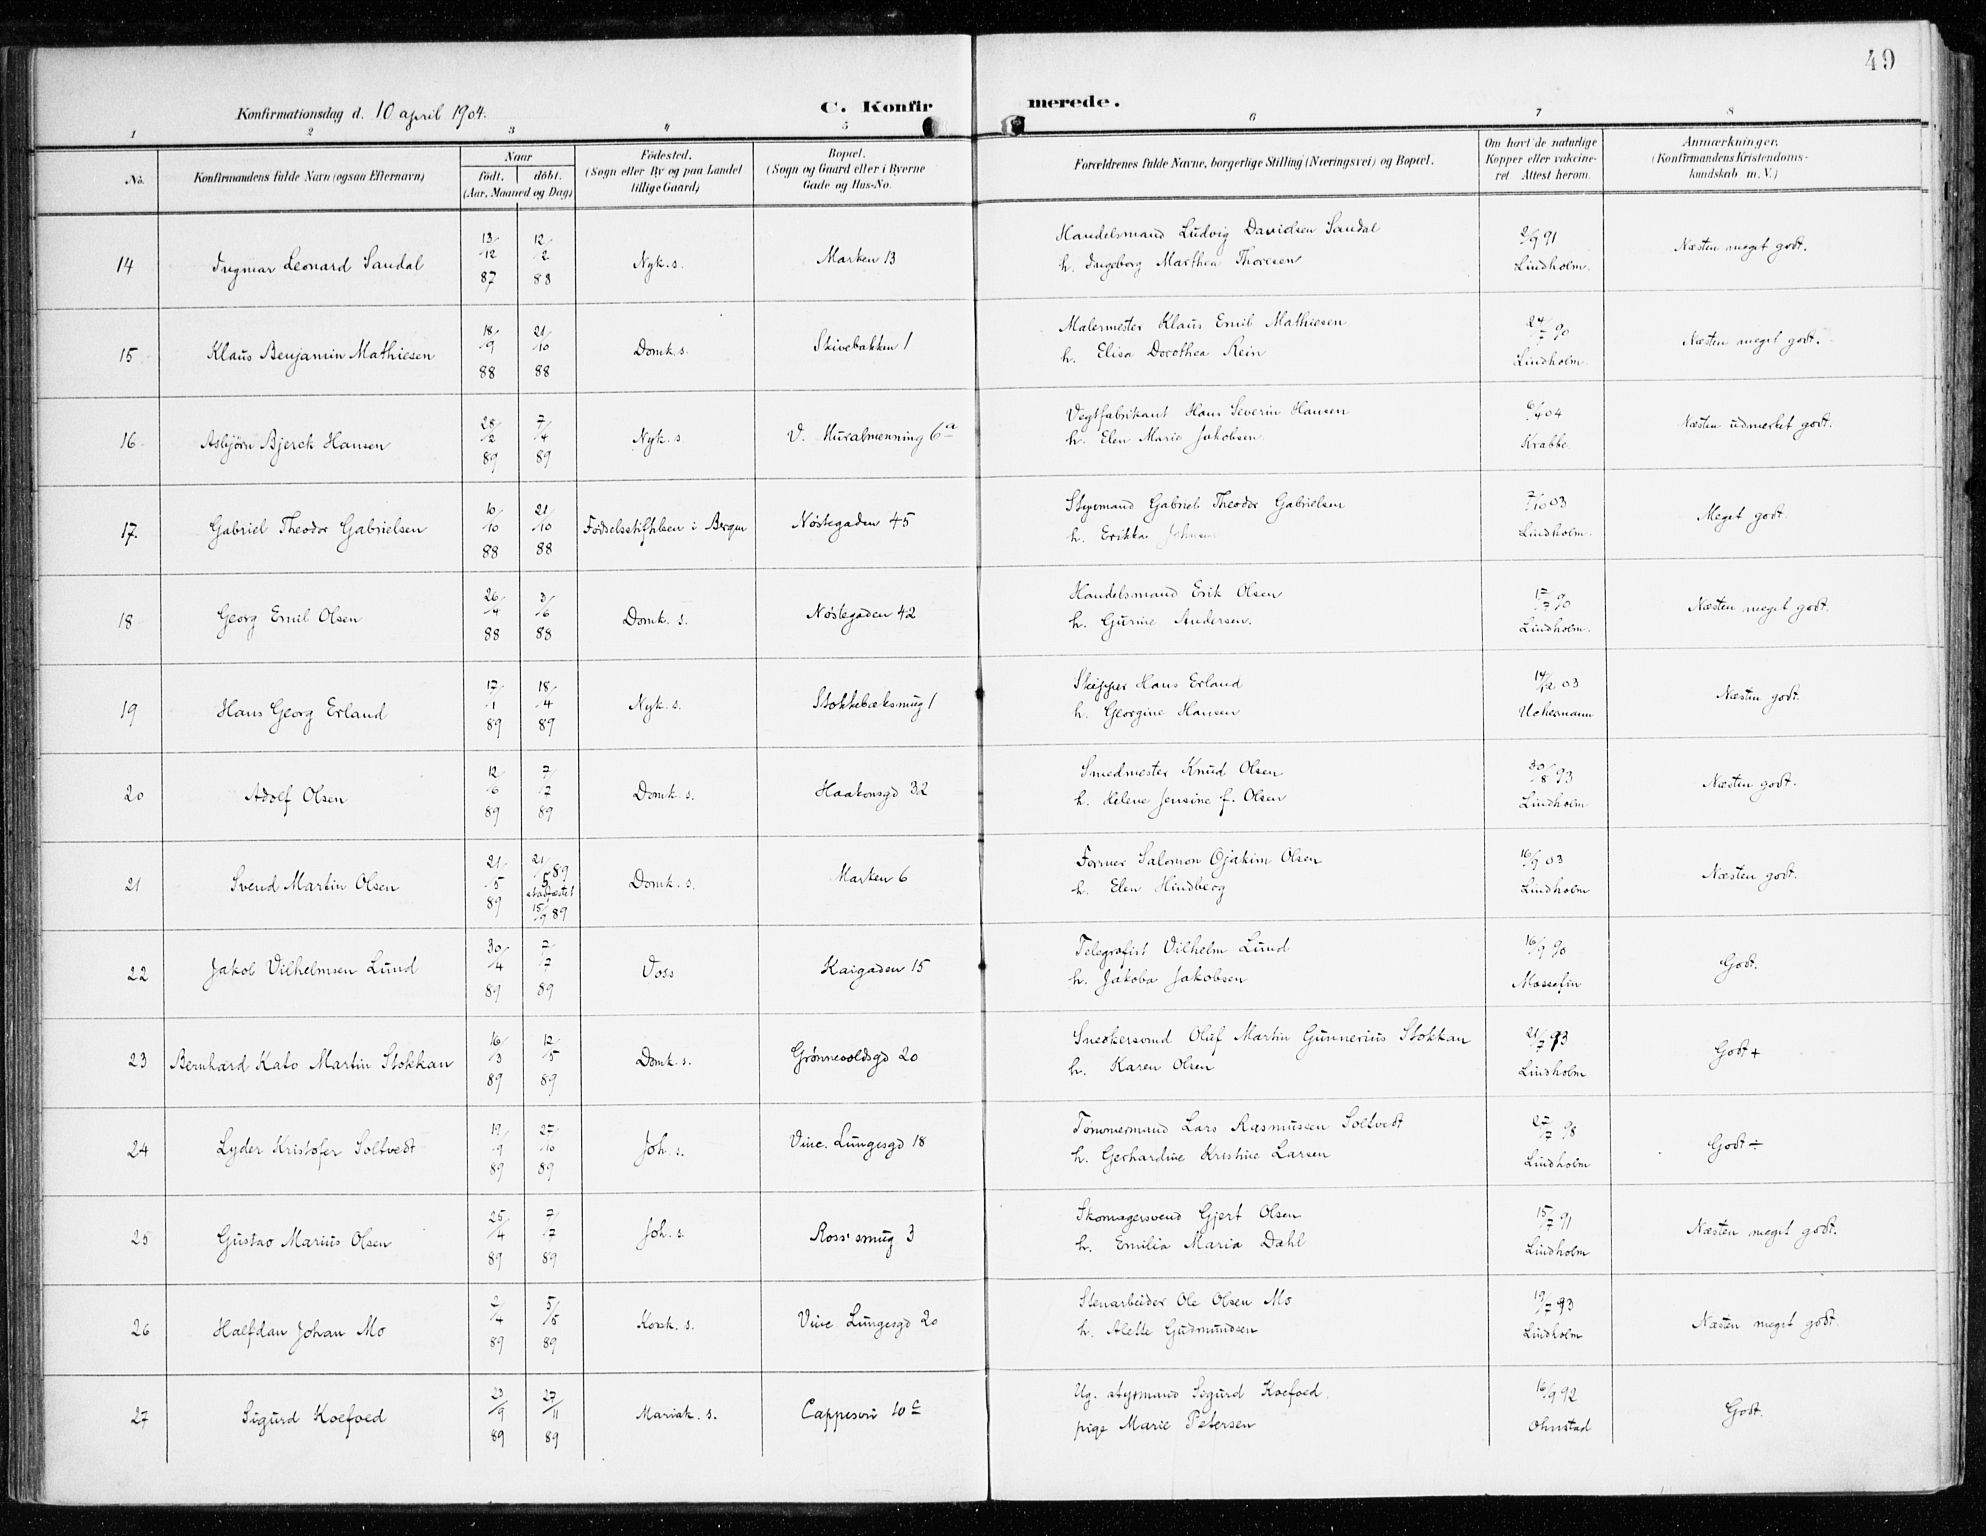 49
Konfirmationsdag d. 10 april 1904.
C. Konfirmerede.
1 2 3 4 5 6 7 8
No.
Konfirmandens fulde Navn (ogsaa Efternavn)
Naar
født. døbt.
(Aar, Maaned og Dag)
Fødested.
(Sogn eller By og paa Landet
tillige Gaard)
Bopæl.
(Sogn og Gaard eller i Byerne
Gade og Hus-No.
Forældrenes fulde Navne, borgerlige Stilling (Næringsvei) og Bopæl.
Om havt de naturlige
Kopper eller vakcine-
ret. Attest herom.
Anmærkninger.
(Konfirmandens Kristendoms-
kundskab m. V.)
14 Ingmar Leonard Sandal 13/12 87 12/2 88 Nyk. s. Marken 13
Handelsmand Ludvig Davidsen Sandal
h. Ingeborg Marthea Thoresen
2/9 91 Lindholm. Næsten meget godt.
15 Klaus Benjamin Mathiesen 18/9 88 21/10 88 Domk. s. Skivebakken 1
Malermester Klaus Emil Mathiesen
h. Elisa Dorothea Rein
24/7 90 Lindholm. Næsten meget godt.
16 Asbjørn Bjerck Hansen 28/2 89 7/4 89 Nyk. s. V. Muralmenning 6a
Vegtfabrikant Hans Severin Hansen
h. Elen Marie Jakobsen.
04 Krabbe. Næsten udmerket godt.
17. Gabriel Theodor Gabrielsen 10/10 88 21/10 88 Fødselsstiftelsen i Bergen Nøstegaden 45
Styrmand Gabriel Theodor Gabrielsen
h. Erikka Johnsen
7/10 03 Lindholm. Meget godt.
18 Georg Emil Olsen 26/4 88 3/6 88 Domk. s. Nøstegaden 42
Handelsmand Erik Olsen
h. Gurine Andersen.
17/7 90 Lindholm. Næsten meget godt.
19 Hans Georg Erland 17/1 89 18/4 89 Nyk. s. Stokkebæksmug 1
Skipper Hans Erland
h. Georgine Hansen
14/12 03 Uchermann Næsten godt.
20 Adolf Olsen 12/6 89 7/7 89 Domk. s. Haakonsgd 32
Smedmester Knud Olsen
h. Helene Jensine f. Olsen
30/8 93 Lindholm Næsten godt.
21 Svend Martin Olsen 21/5 89 21/5 89 stadfæstet 15/9 89 Domk. s. Marken 6
Former Salomon Ojakim Olsen
h. Elen Hindberg
16/9 03 Lindholm Næsten godt.
22 Jakob Vilhelmsen Lund 30/4 89 7/7 89 Voss Kaigaden 15
Telegrafist Vilhelm Lund
h. Jakoba Jakobsen
16/9 90 Massefin Godt.
23 Bernhard Kato Martin Stokkan 16/3 89 12/5 89 Domk. s. Grønnevoldsgd 20
Snedkersvend Oluf Martin Gunnerius Stokkan
h. Karen Olsen
21/7 93 Lindholm Godt +
24 Lyder Kristofer Soltvedt 19/9 89 27/10 89 Joh. s. Vinc. Lungesgd 18
Tømmermand Lars Rasmussen Soltvedt
h. Gerhardine Kristine Larsen
27/7 98 Lindholm Godt ÷
25 Gustav Marius Olsen 25/4 89 7/7 89 Joh. s. Ross' smug 3
Skomagersvend Gjert Olsen
h. Emilia Maria Dahl
15/7 91 Lindholm Næsten meget godt.
26 Halfdan Johan Mo 2/4 89 5/5 89 Korsk. s. Vinc. Lungesgd 20
Stenarbeider Ole Olsen Mo
h. Alette Gudmundsen
19/7 93 Lindholm Næsten meget godt.
27 Sigurd Koefoed 23/9 89 27/11 89 Mariak. s. Cappesvei 10c
Ug. styrmand Sigurd Koefoed.
pige Marie Petersen
16/9 92 Ohnstad Godt.